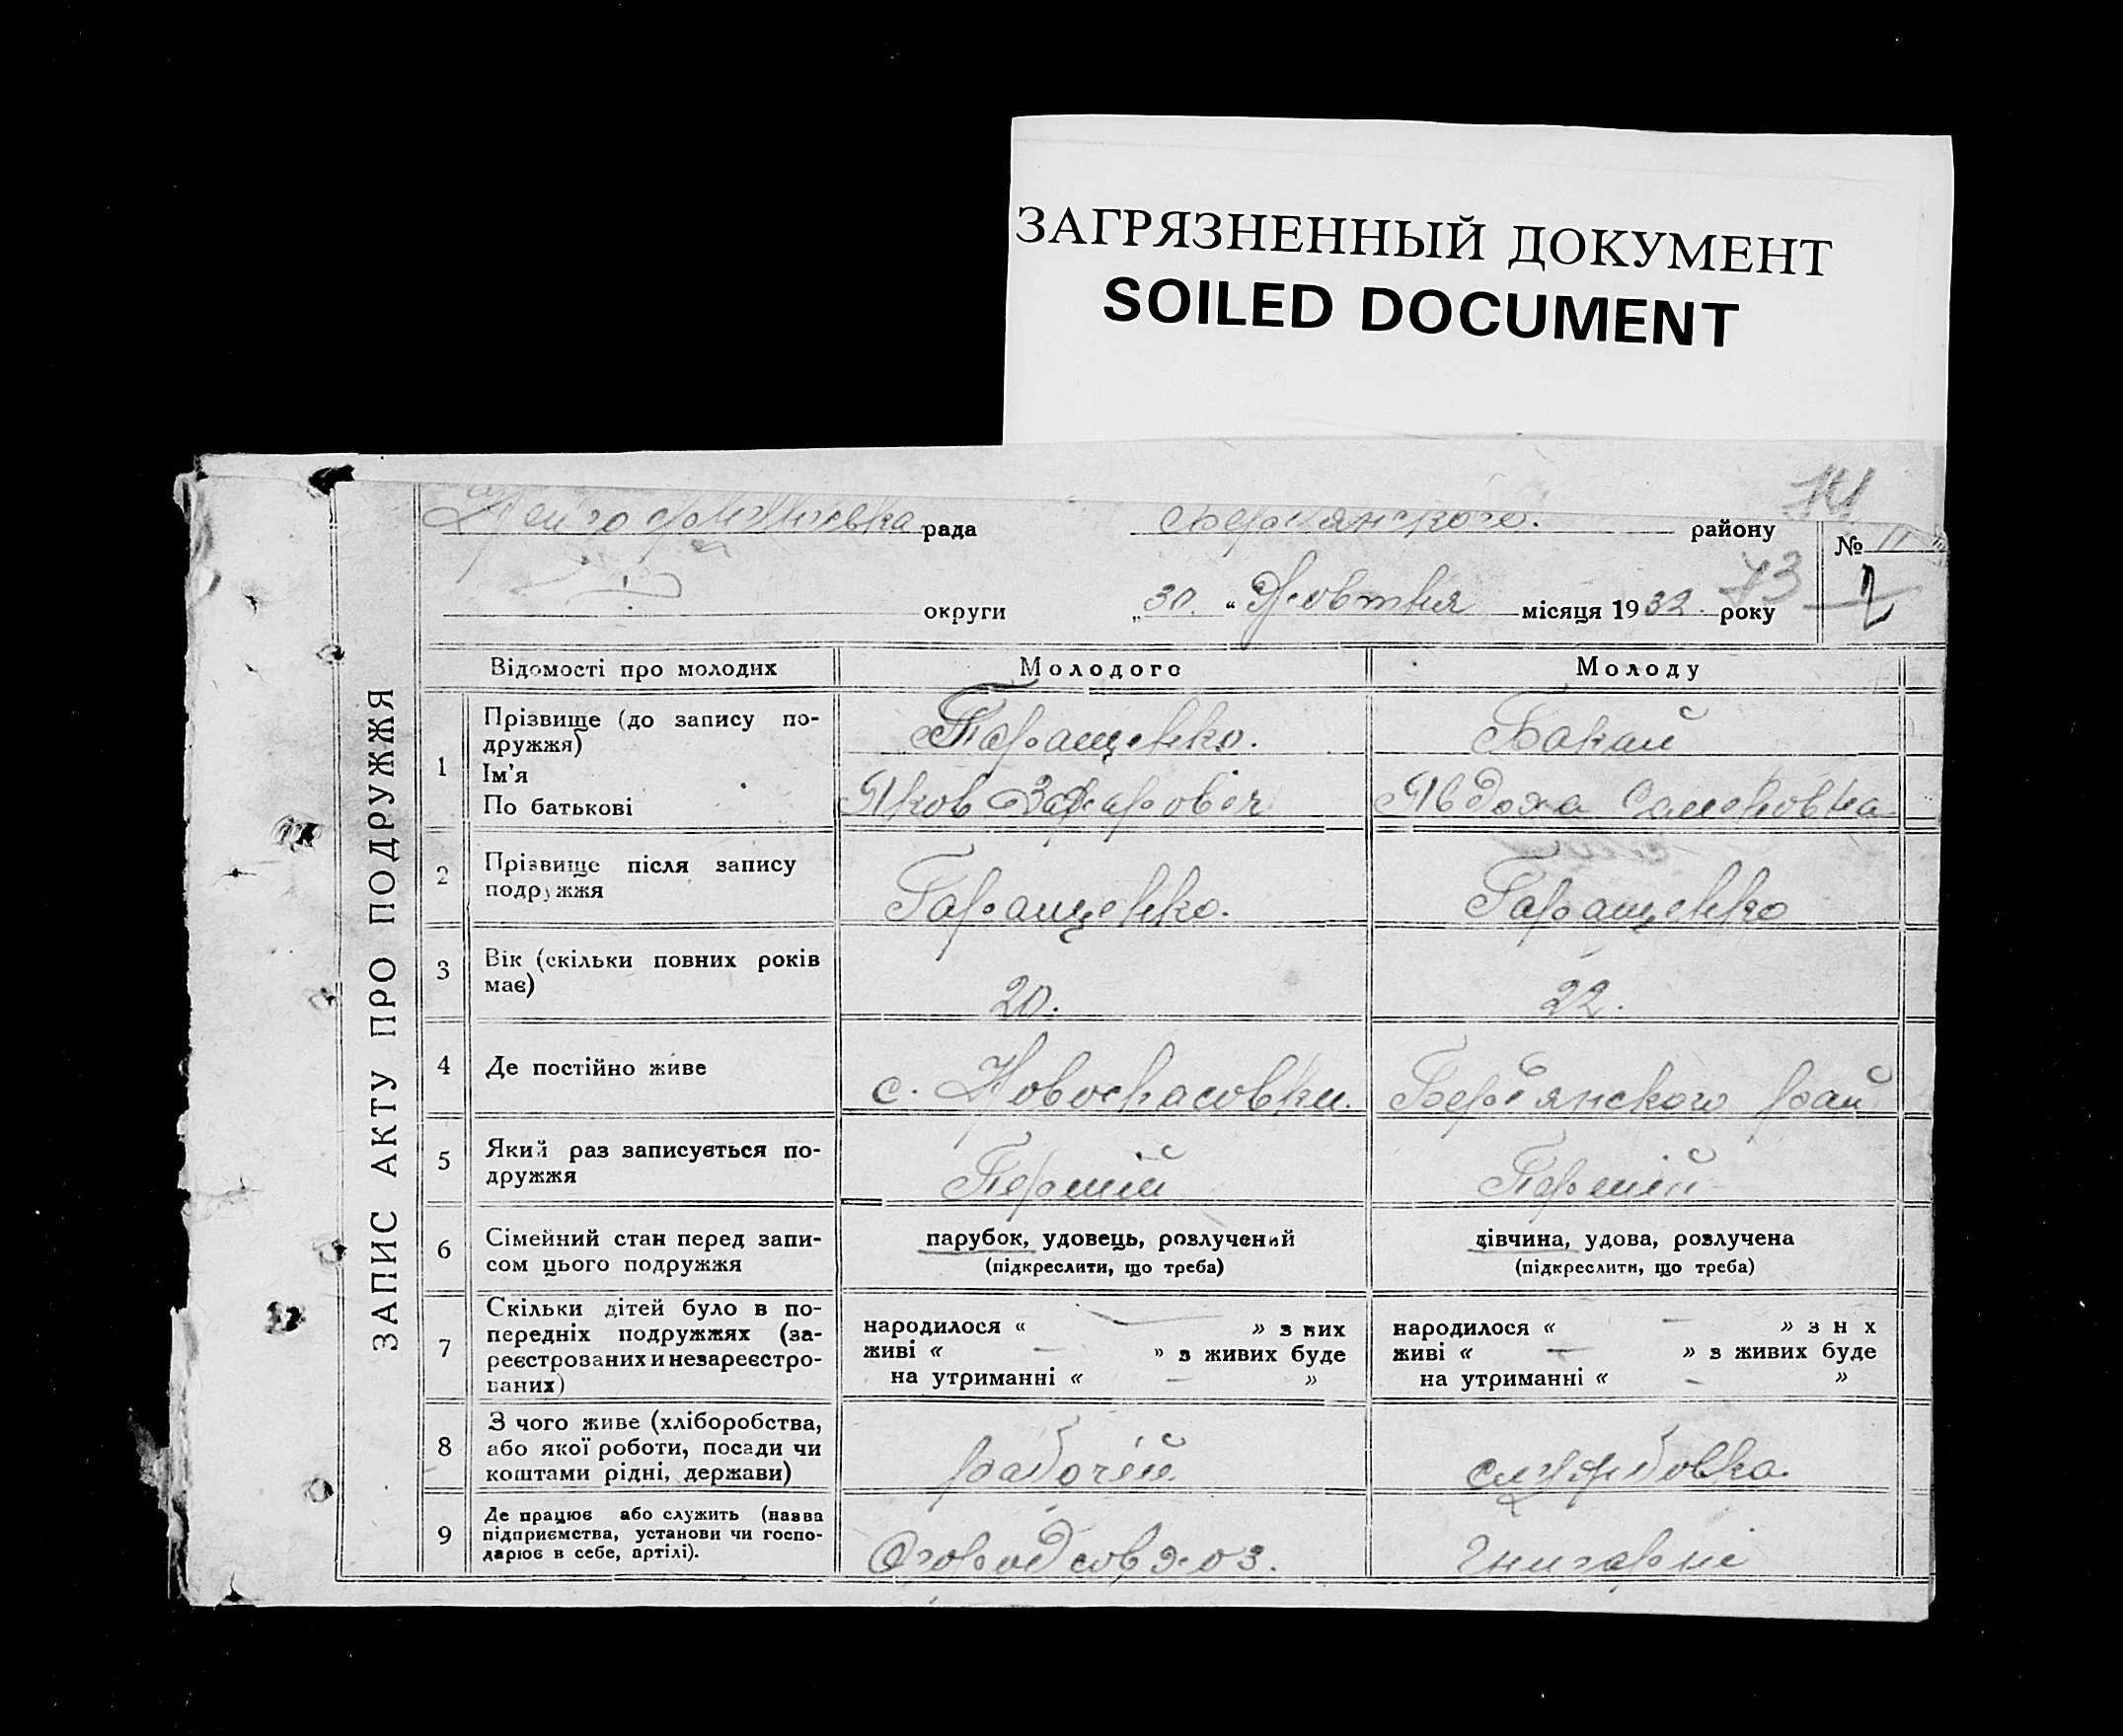 ЗАГРЯЗНЕННЫЙ ДОКУМЕНТ
SOILED DOCUMENT
ЗАПИС АКТУ ПРО ПОДРУЖЖЯ
рада
Бердянского. району
№ 11
округи „30.“ Жовтня місяця 1932 року
73
Відомості про молодих Молодого Молоду
1 Прізвище (до запису по-
дружжя)
Ім'я
По батькові
Гаращенко.
Яков Захаровіч
Бакай
Явдоха Семеновна
2 Прізвище після запису
подружжя
Гаращенко.
Гаращенко
3 Вік (скільки повних років
має)
20.
22.
4 Де постійно живе
с. Новоспасовки.
Бердянского рай
5 Який раз записується по-
дружжя
Першій
Першій
6 Сімейний стан перед запи-
сом цього подружжя
парубок, удовець, розлучений
(підкреслити, що треба)
дівчина, удова, розлучена
(підкреслити, що треба)
7 Скільки дітей було в по-
передніх подружжях (за-
реєстрованих и незареєстро-
ваних)
народилося « — » з них
живі « — » з живих буде
на утриманні « — »
народилося « — » з н х
живі « — » з живих буде
на утриманні « — »
8 З чого живе (хліборобства,
або якої роботи, посади чи
коштами рідні, держави)
рабочій
службовка.
9 Де працює або служить (назва
підприємства, установи чи госпо-
дарює в себе, артілі).
Огородсовхоз.